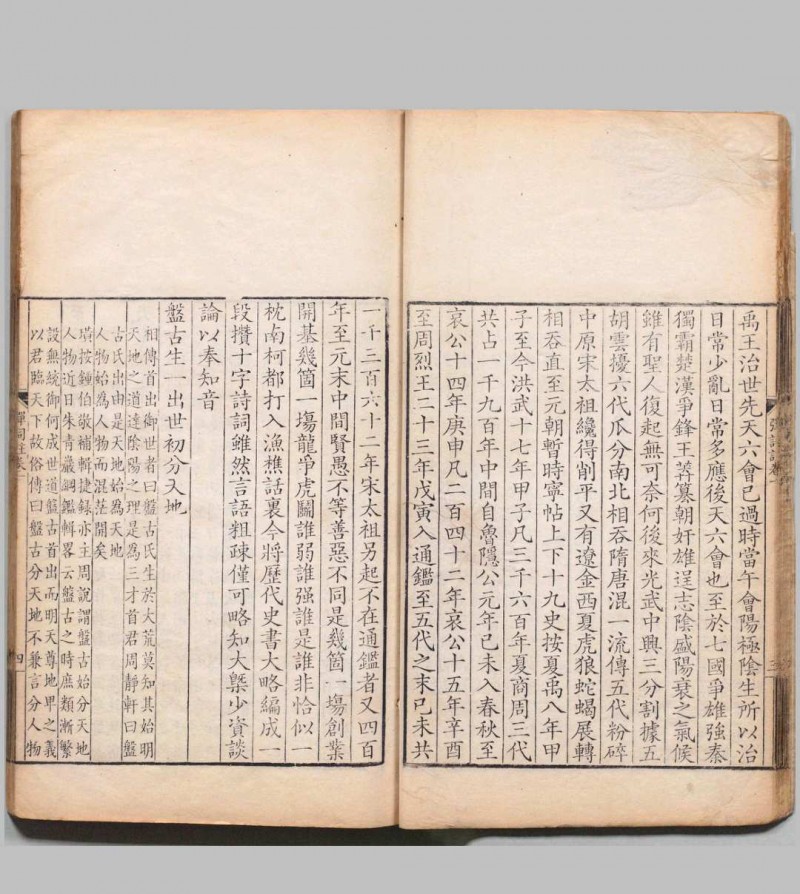 禹王治世先天六會已過時當午會陽極陰生所以治
日常少亂日常多應後天六會也至於七國爭雄強秦
獨霸楚漢爭鋒王莽篡朝奸雄逞志陰盛陽衰之氣候
雖有聖人復起無可奈何後來光武中興三分割據五
胡雲擾六代瓜分南北相吞隋唐混一流傳五代粉碎
中原宋太祖纔得削平又有遼金西夏虎狼蛇蝎展轉
相吞直至元朝暫時寧帖上下十九史按夏禹八年甲
子至今洪武十七年甲子凡三千六百年夏商周三代
共占一千九百年中間自魯隱公元年己未入春秋至
哀公十四年庚申凡二百四十二年哀公十五年辛酉
至周烈王二十三年戊寅入通鑑至五代之末己未共
一千三百六十二年宋太祖另起不在通鑑者又四百
年至元末中間賢愚不等善惡不同是幾箇一塲創業
開基幾箇一塲龍爭虎鬬誰弱誰强誰是誰非恰似一
枕南柯都打入漁樵話裏今將歷代史書大略編成一
段攢十字詩詞雖然言語粗疎僅可略知大槩少資談
論以奉知音
盤古生一出世初分天地
相傳首出御世者曰盤古氏生於大荒莫知其始明
天地之道達陰陽之理是為三才首君周靜軒曰盤
古氏出由是天地始為天地
人物始為人物而混茫開矣
璜按鍾伯敬補輯捷録亦主周說謂盤古始分天地
人物近日朱青巖綱鑑輯畧云盤古之時庶類漸繁
設無統御何成世道盤古首出而明天尊地卑之義
以君臨天下故俗傳曰盤古分天地不兼言分人物
彈詞註卷一
四